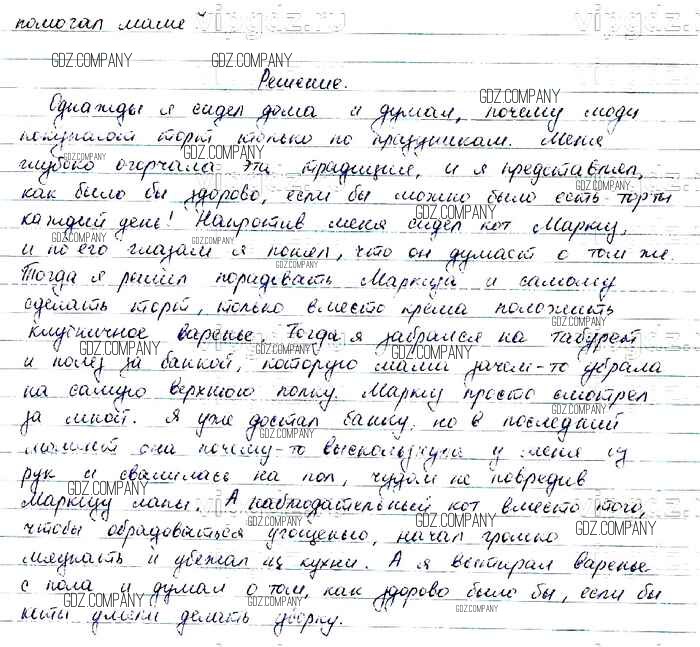 помогал маме
Решение.
Однажды я сидел дома и думал, почему люди
покупают торт только по праздникам. Меня
глубоко огорчала эта традиция, и я представлял,
как было бы здорово, если бы можно было есть торты
каждый день! Напротив меня сидел кот Маркиз,
и по его глазам я понял, что он думает о том же.
Тогда я решил порадовать Маркиза и самому
сделать торт, только вместо крема положить
клубничное варенье. Тогда я забрался на табурет
и полез за банкой, которую мама зачем-то убрала
на самую верхнюю полку. Маркиз просто смотрел
за мной. Я уже достал банку, но в последний
момент она почему-то выскользнула у меня из
рук и свалилась на пол, чудом не повредив
Маркизу лапы. А наблюдательный кот вместо того,
чтобы обрадоваться угощенью, начал громко
мяукать и убежал из кухни. А я вытирал варенье
с пола и думал о том, как здорово было бы, если бы
коты умели делать уборку.
vipgdz.ru
GDZ.COMPANY